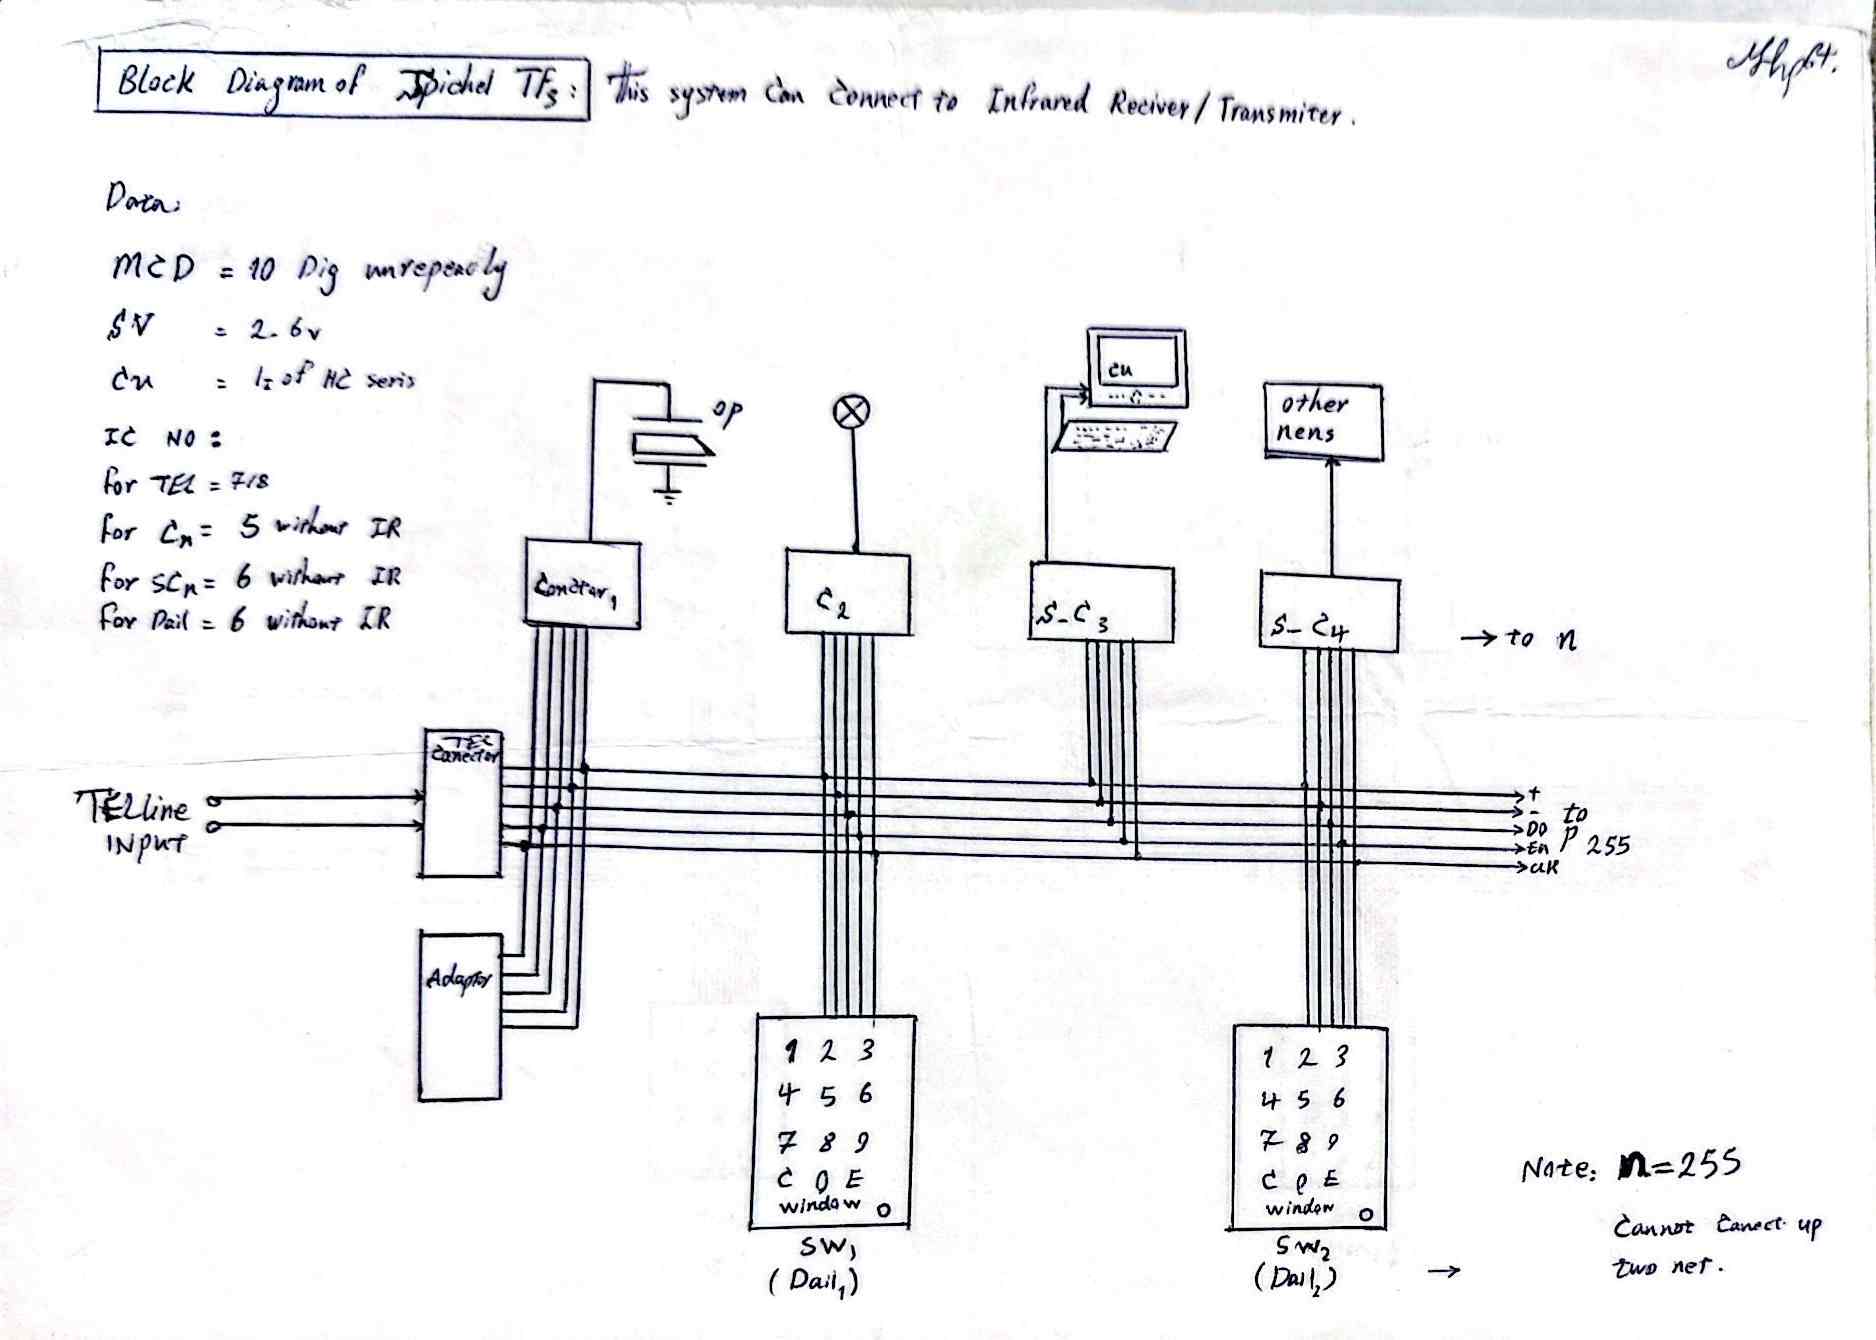 Block Diagram of Spichel TFs: This system can connect to Infrared Reciver/Transmiter.
Data:
MCD = 10 Dig
SV = 2-6v
Cu = of HC seris
IC NO:
for TEL = 7/8
for Cn = 5 without IR
for SCn = 6 without IR
for Dail = 6 without IR
op
cu
other
nens
Conctor1
C2
S-C3
S-C4
→ to n
TEL
Conector
TEL line
INPUT
+
-
DO
En
CLK
to
P 255
Adaptor
1 2 3
4 5 6
7 8 9
C 0 E
window
SW1
(Dail1)
1 2 3
4 5 6
7 8 9
C 0 E
window
SW2
(Dail2)
→
Note: n=255
Cannot Conect up
two net.